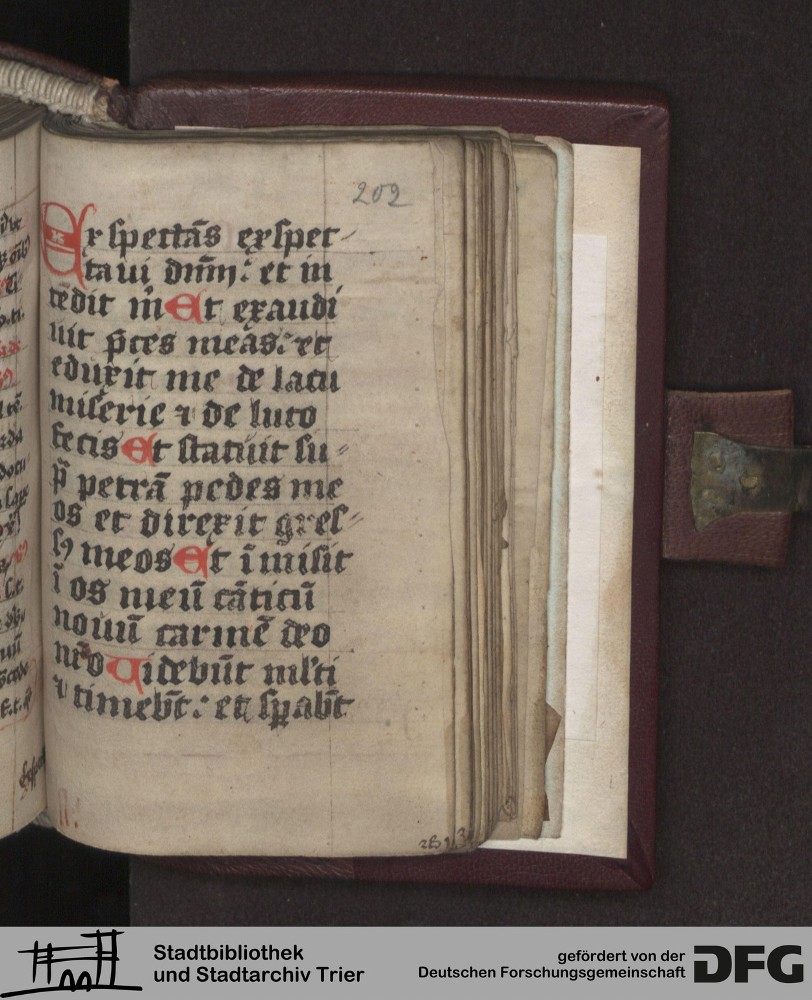 202
Exspectãs exspec-
taui dnm̃: et in
tẽdit m̃ Et exaudi
uit p̃ces meas: et
eduxit me de lacu
miserie ⁊ de luto
fecis Et statuit su-
p̃ petrã pedes me
os et direxit gres-
sꝰ meos Et ĩmisit
ĩ os meũ cãticũ
nouũ carmẽ deo
nr̃o Uidebũt ml̃ti
⁊ timebũt: et spabũt
Stadtbibliothek
und Stadtarchiv Trier
gefördert von der
Deutschen Forschungsgemeinschaft
DFG